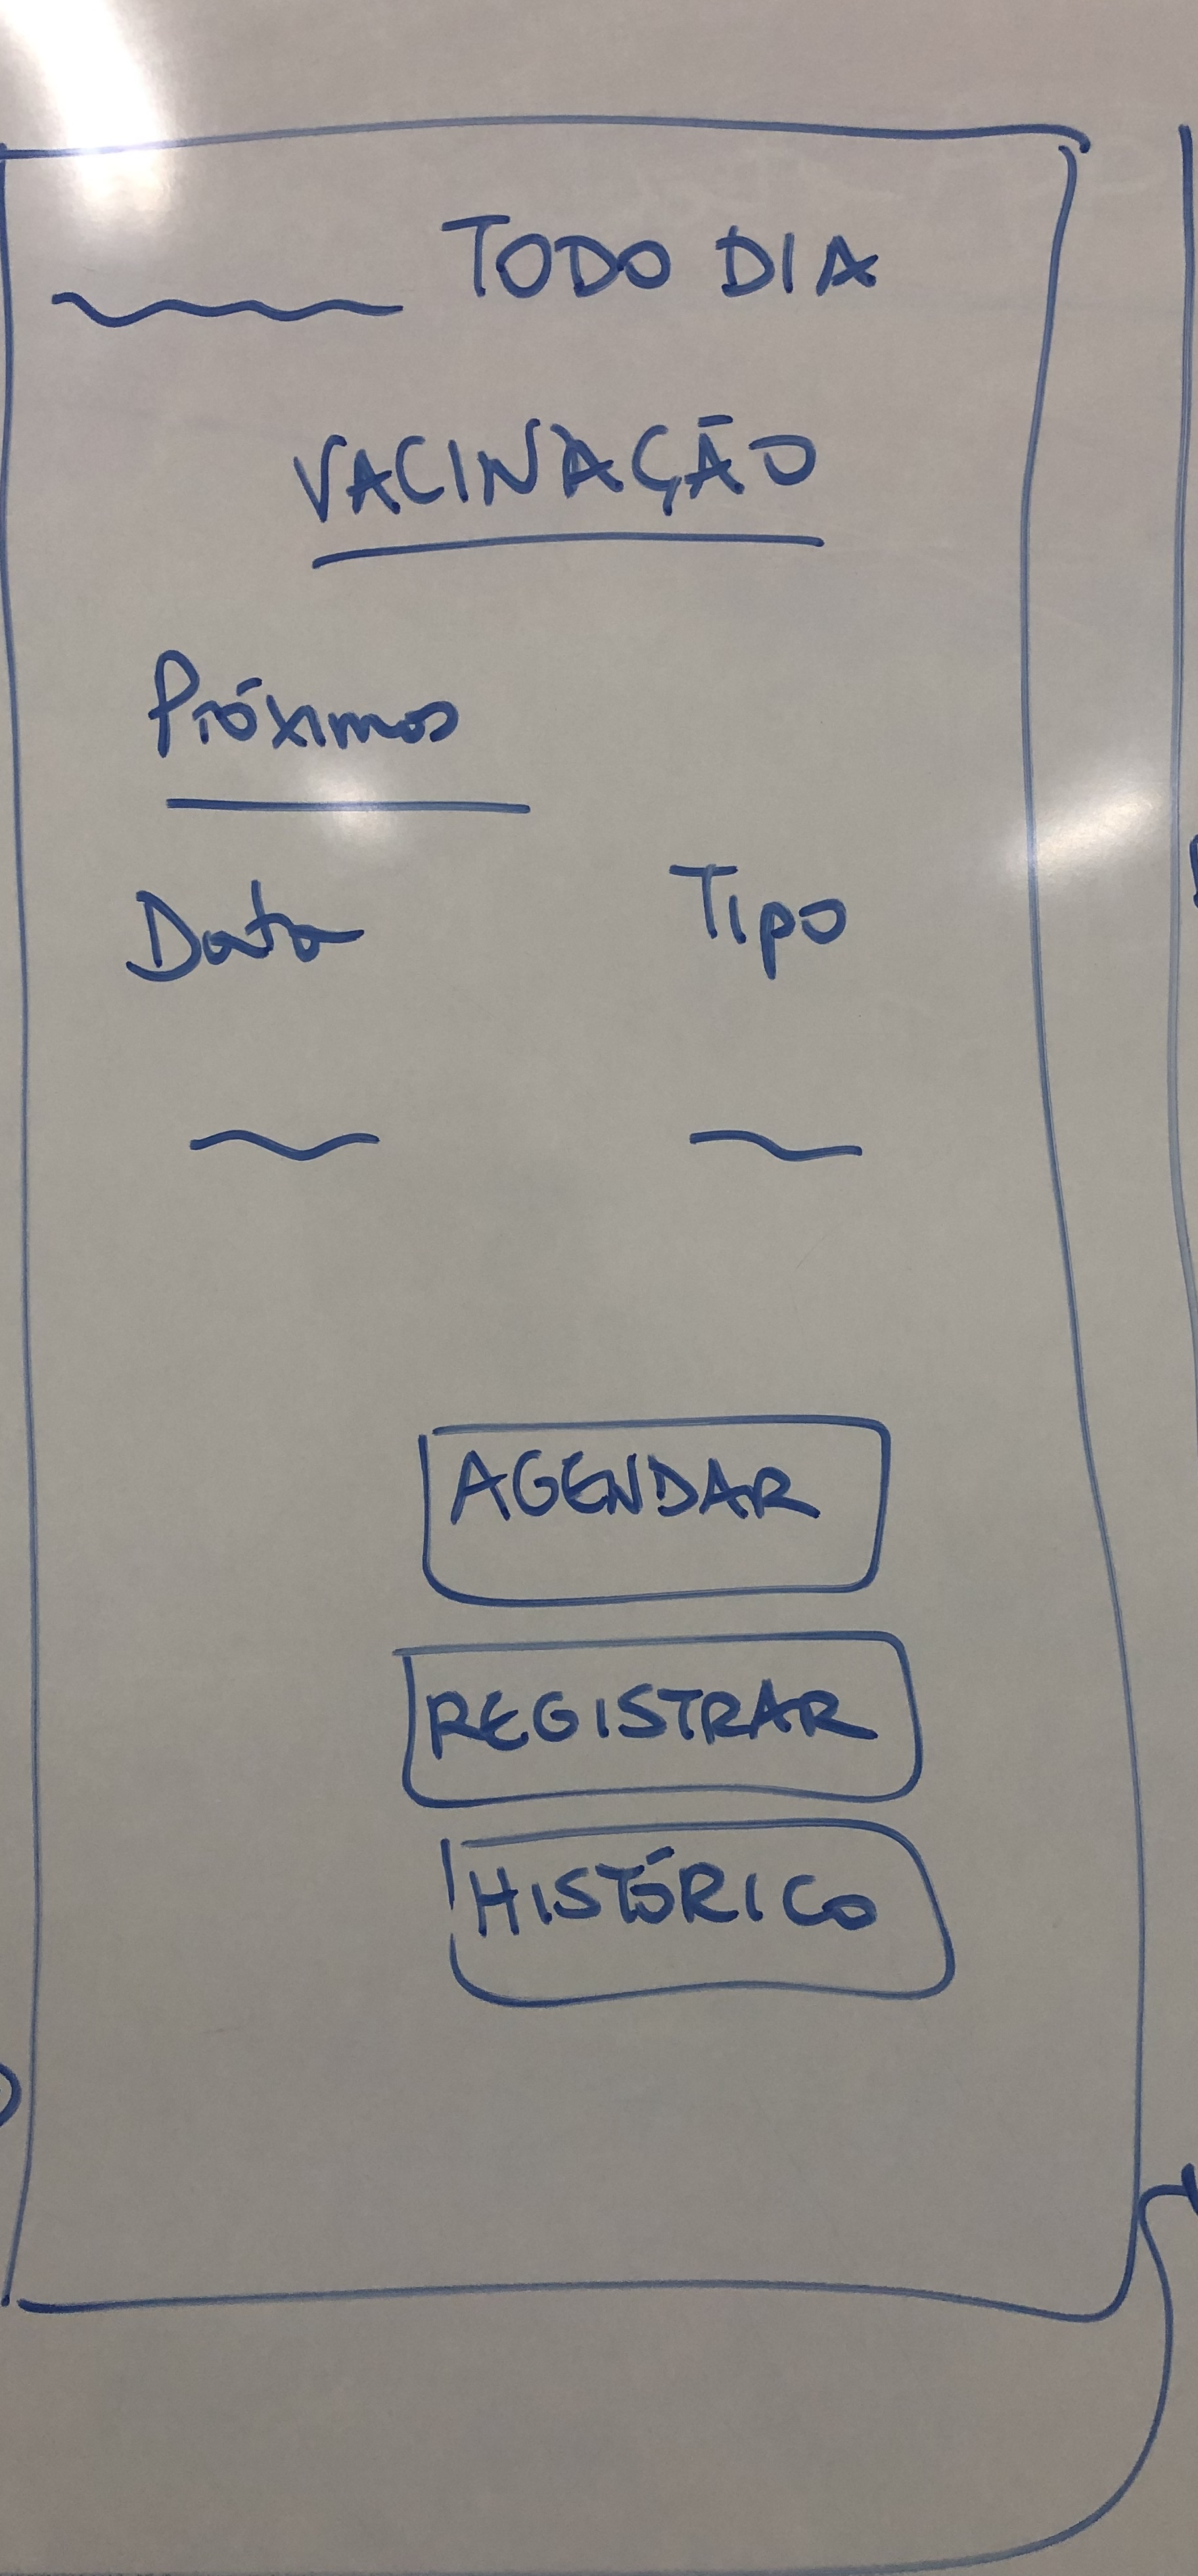 TODO DIA
VACINAÇÃO
Próximos
Data Tipo
AGENDAR
REGISTRAR
HISTÓRICO